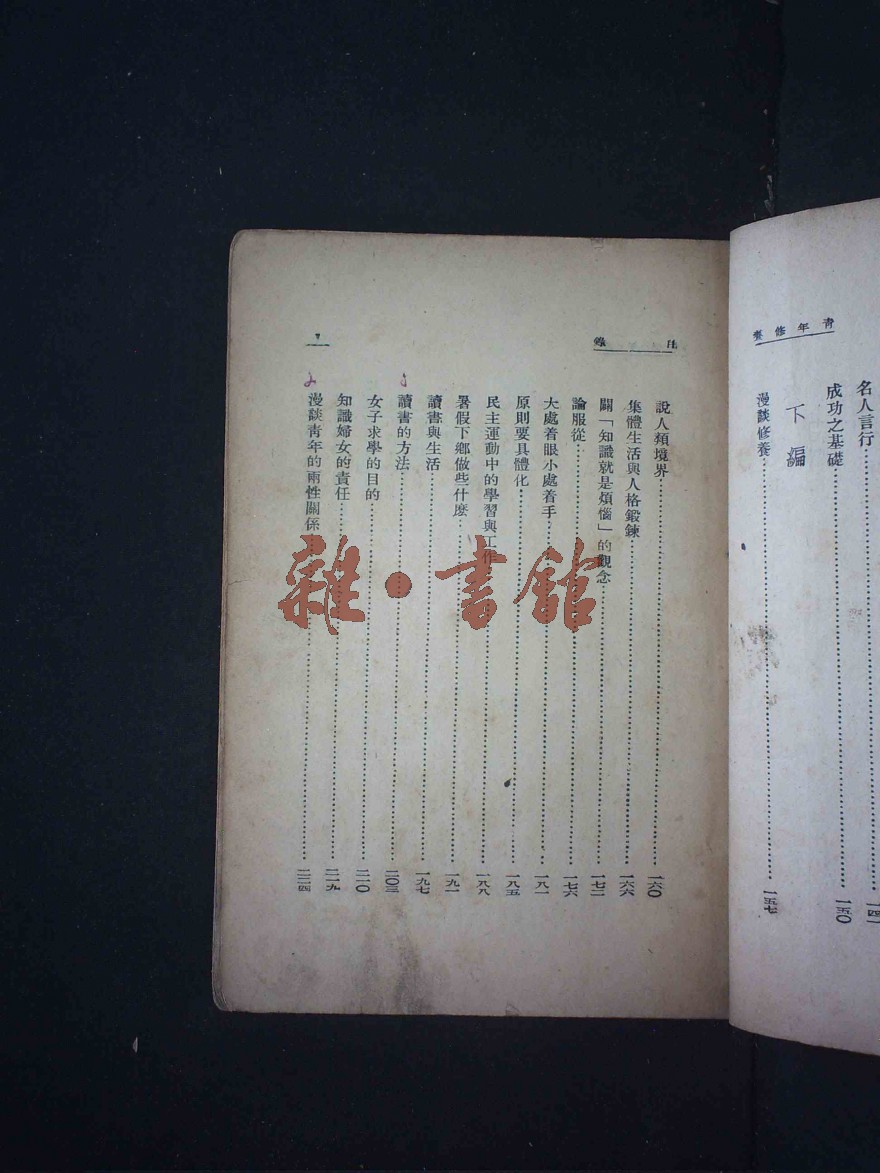 青年修養
名人言行……一四一
成功之基礎……一五〇
下編
漫談修養……一五七
目錄
說人類境界……一六〇
集體生活與人格鍛鍊……一六六
闢「知識就是煩惱」的觀念……一七二
論服從……一七六
大處着眼小處着手……一八一
原則要具體化……一八五
民主運動中的學習與工作……一八八
暑假下鄉做些什麼……一九一
讀書與生活……一九七
讀書的方法……二〇三
女子求學的目的……二一〇
知識婦女的責任……二一九
漫談青年的兩性關係……二二四
雜·書館